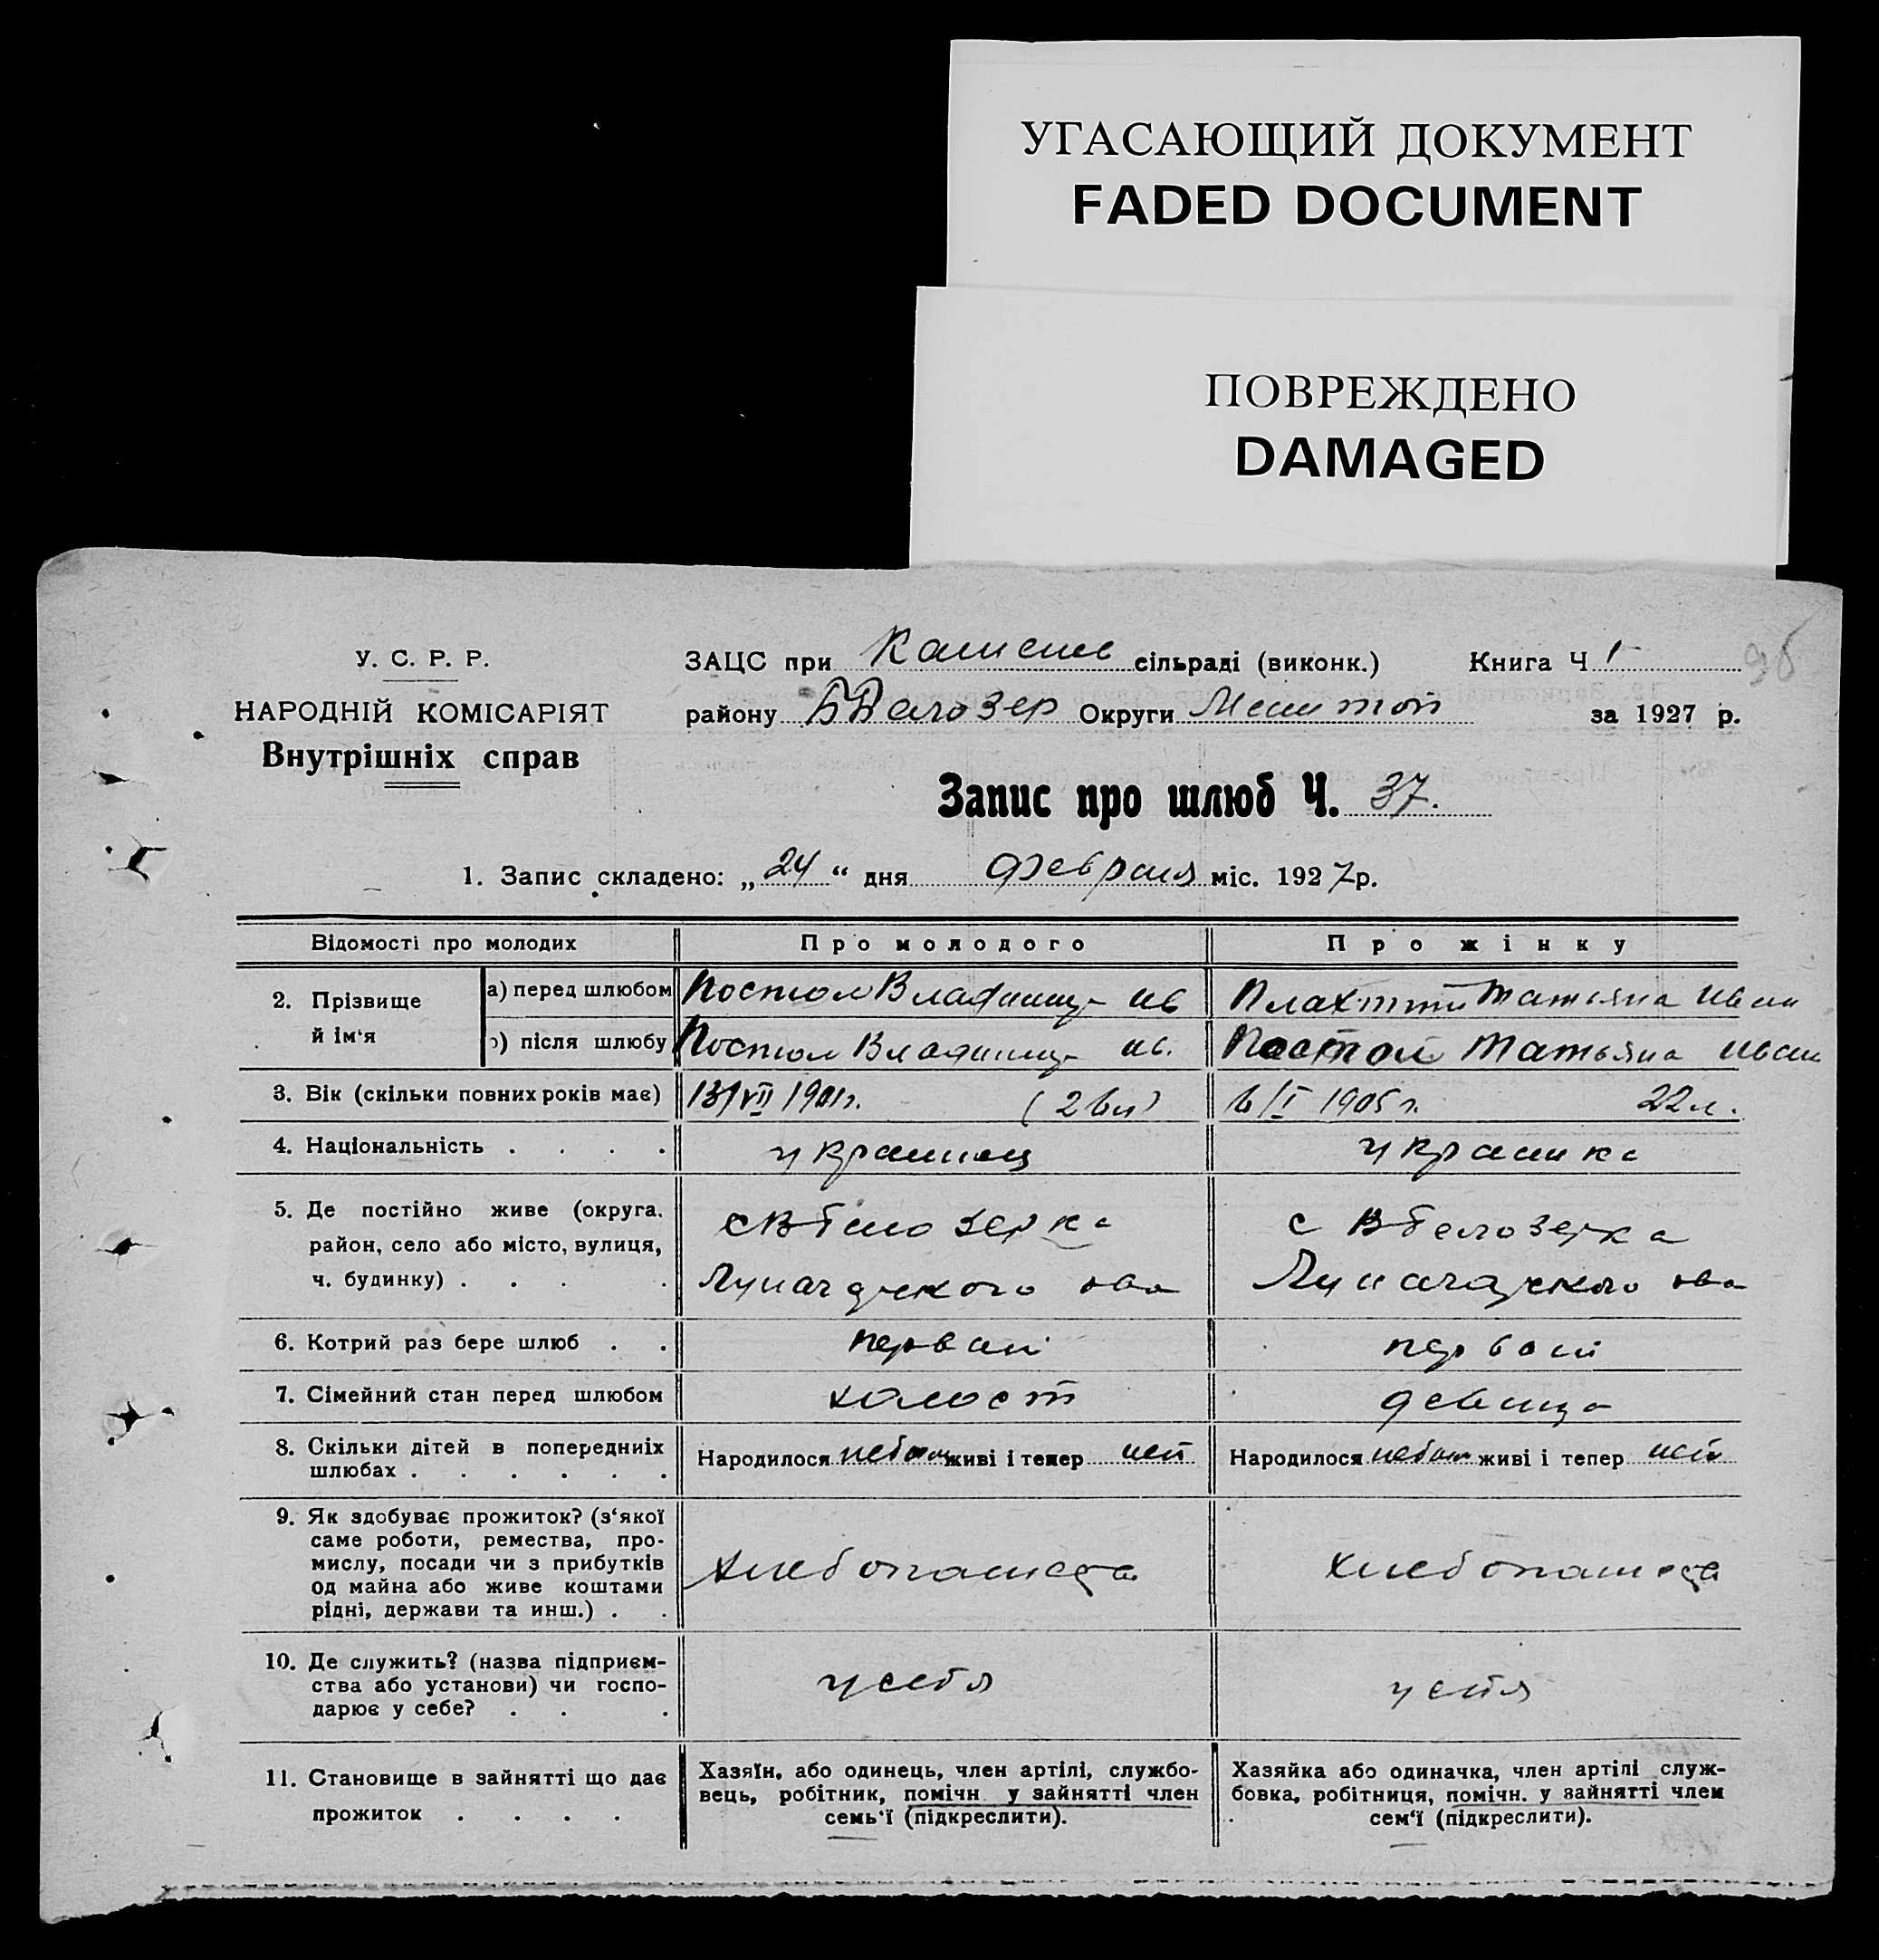 УГАСАЮЩИЙ ДОКУМЕНТ
FADED DOCUMENT
ПОВРЕЖДЕНО
DAMAGED
У. С. Р. Р.
НАРОДНІЙ КОМІСАРІЯТ
Внутрішніх справ
ЗАЦС при сільраді (виконк.) Книга Ч 1
96
району Округи за 1927 р.
Запис про шлюб Ч. 37.
1. Запис складено: „24“ дня февраля міс. 1927 р.
Відомості про молодих Про молодого Про жінку
2. Прізвище й ім‘я
а) перед шлюбом Постол Владимир Ив Татьяна Иван
б) після шлюбу Постол Владимир Ив. Постол Татьяна Иван
3. Вік (скільки повних років має) 13/VII 1901г. (26л) 6/I 1905 г. 22 л.
4. Національність . . . . украинец украинка
5. Де постійно живе (округа, район, село або місто, вулиця, ч. будинку) . . . .
с В Белозерка
с В Белозерка
6. Котрий раз бере шлюб . . первый первый
7. Сімейний стан перед шлюбом холост девица
8. Скільки дітей в попередніх шлюбах . . . . . .
Народилося небыло живі і тепер нет
Народилося небыло живі і тепер нет
9. Як здобуває прожиток? (з‘якої
саме роботи, ремества, про-
мислу, посади чи з прибутків
од майна або живе коштами
рідні, держави та инш.) . .
хлебопашество
хлебопашество
10. Де служить? (назва підприєм-
ства або установи) чи госпо-
дарює у себе? . . .
у себя
у себя
11. Становище в зайнятті що дає
прожиток . . . .
Хазяїн, або одинець, член артілі, службо-
вець, робітник, помічн у зайнятті член
семь‘ї (підкреслити).
Хазяйка або одиначка, член артілі служ-
бовка, робітниця, помічн. у зайнятті член
сем‘ї (підкреслити).